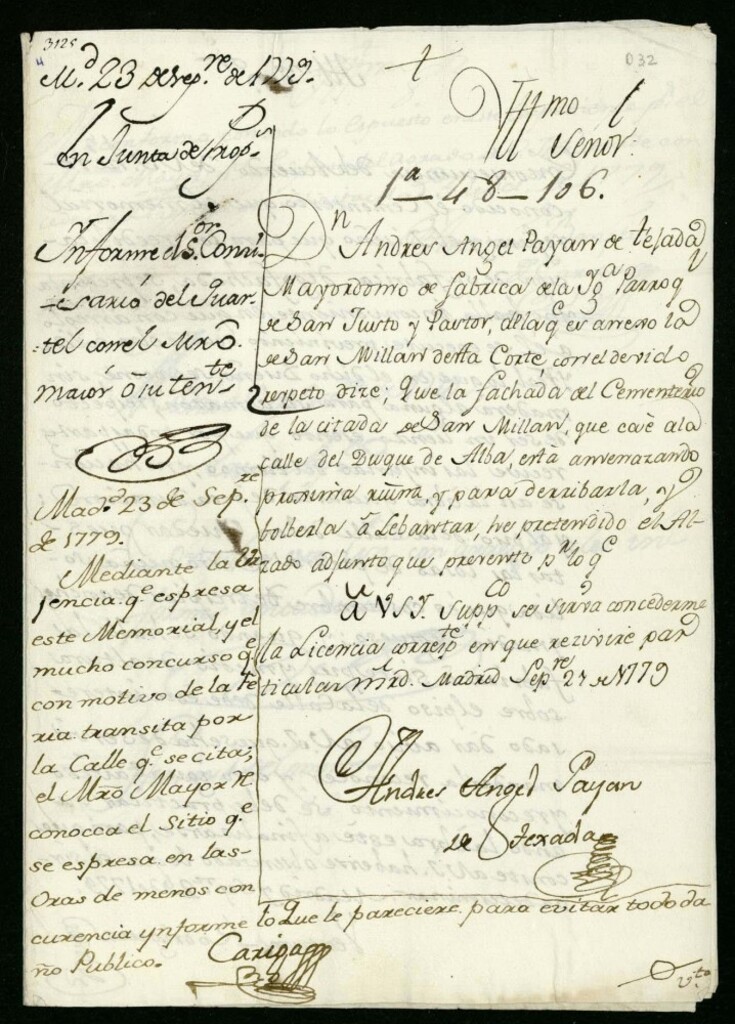 3125
032
M.d 23 de sep.re de 1779.
En Junta de Prop.s
Ynforme el S.or Comi-
-sario del Quar-
-tel con el Mro
maior o su ten.te
Mad.d 23 de Sep.re
de 1779.
Mediante la Ur
jencia q.e espresa
este Memorial, y el
mucho concurso q.e
con motivo de la fe
ria transita por
la Calle q.e se cita;
el Mro Mayor Re
conozca el Sitio q.e
se espresa en las
Oras de menos con
currencia ynforme lo que le pareciere para evitar todo da
ño Publico.
Cariga
Yllmo
Señor
1a_48_106.
Dn Andres Angel Payan de tejada
Mayordomo de fabrica de la Yga Parroq
de San Justo y Pastor, de la q es anexo la
de San Millan desta Corte, con el devido
respeto dize; Que la fachada del Cementerio
de la citada de San Millan, que cae a la
calle del Duque de Alba, està amenazando
proxima ruina, y para derribarla, y
bolberla à Lebantar, he pretendido el Al-
zado adjunto que presento pr lo qe
a V.S.Y. Suppco se sirva concederme
la Licencia correspte en que rezivire par
ticular mrd. Madrid Sepre 27 de 1779
Andres Angel Payan
de Texada
v.to